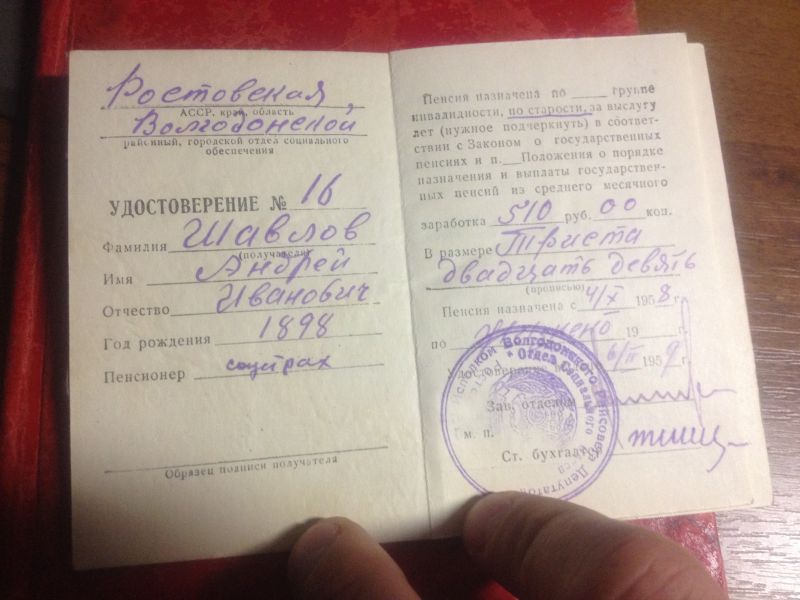 Ростовская,
АССР, край, область
Волгодонской
районный, городской отдел социального
обеспечения
УДОСТОВЕРЕНИЕ № 16
Фамилия Шавлов
(получателя)
Имя Андрей
Отчество Иванович
Год рождения 1898
Пенсионер соцстрах
Образец подписи получателя
Пенсия назначена по ____ группе
инвалидности, по старости, за выслугу
лет (нужное подчеркнуть) в соответ-
ствии с Законом о государственных
пенсиях и п.__Положения о порядке
назначения и выплаты государствен-
ных пенсий из среднего месячного
заработка 510 руб. 00 коп.
В размере Триста
двадцать девять
(прописью)
Пенсия назначена с 4/X 1958 г.
по 19 г.
Удостоверение 6/II 1959 г.
Зав. отделом
м. п.
Ст. бухгалтер
Волгодонского Райсовета Депутатов
Отдел Социального